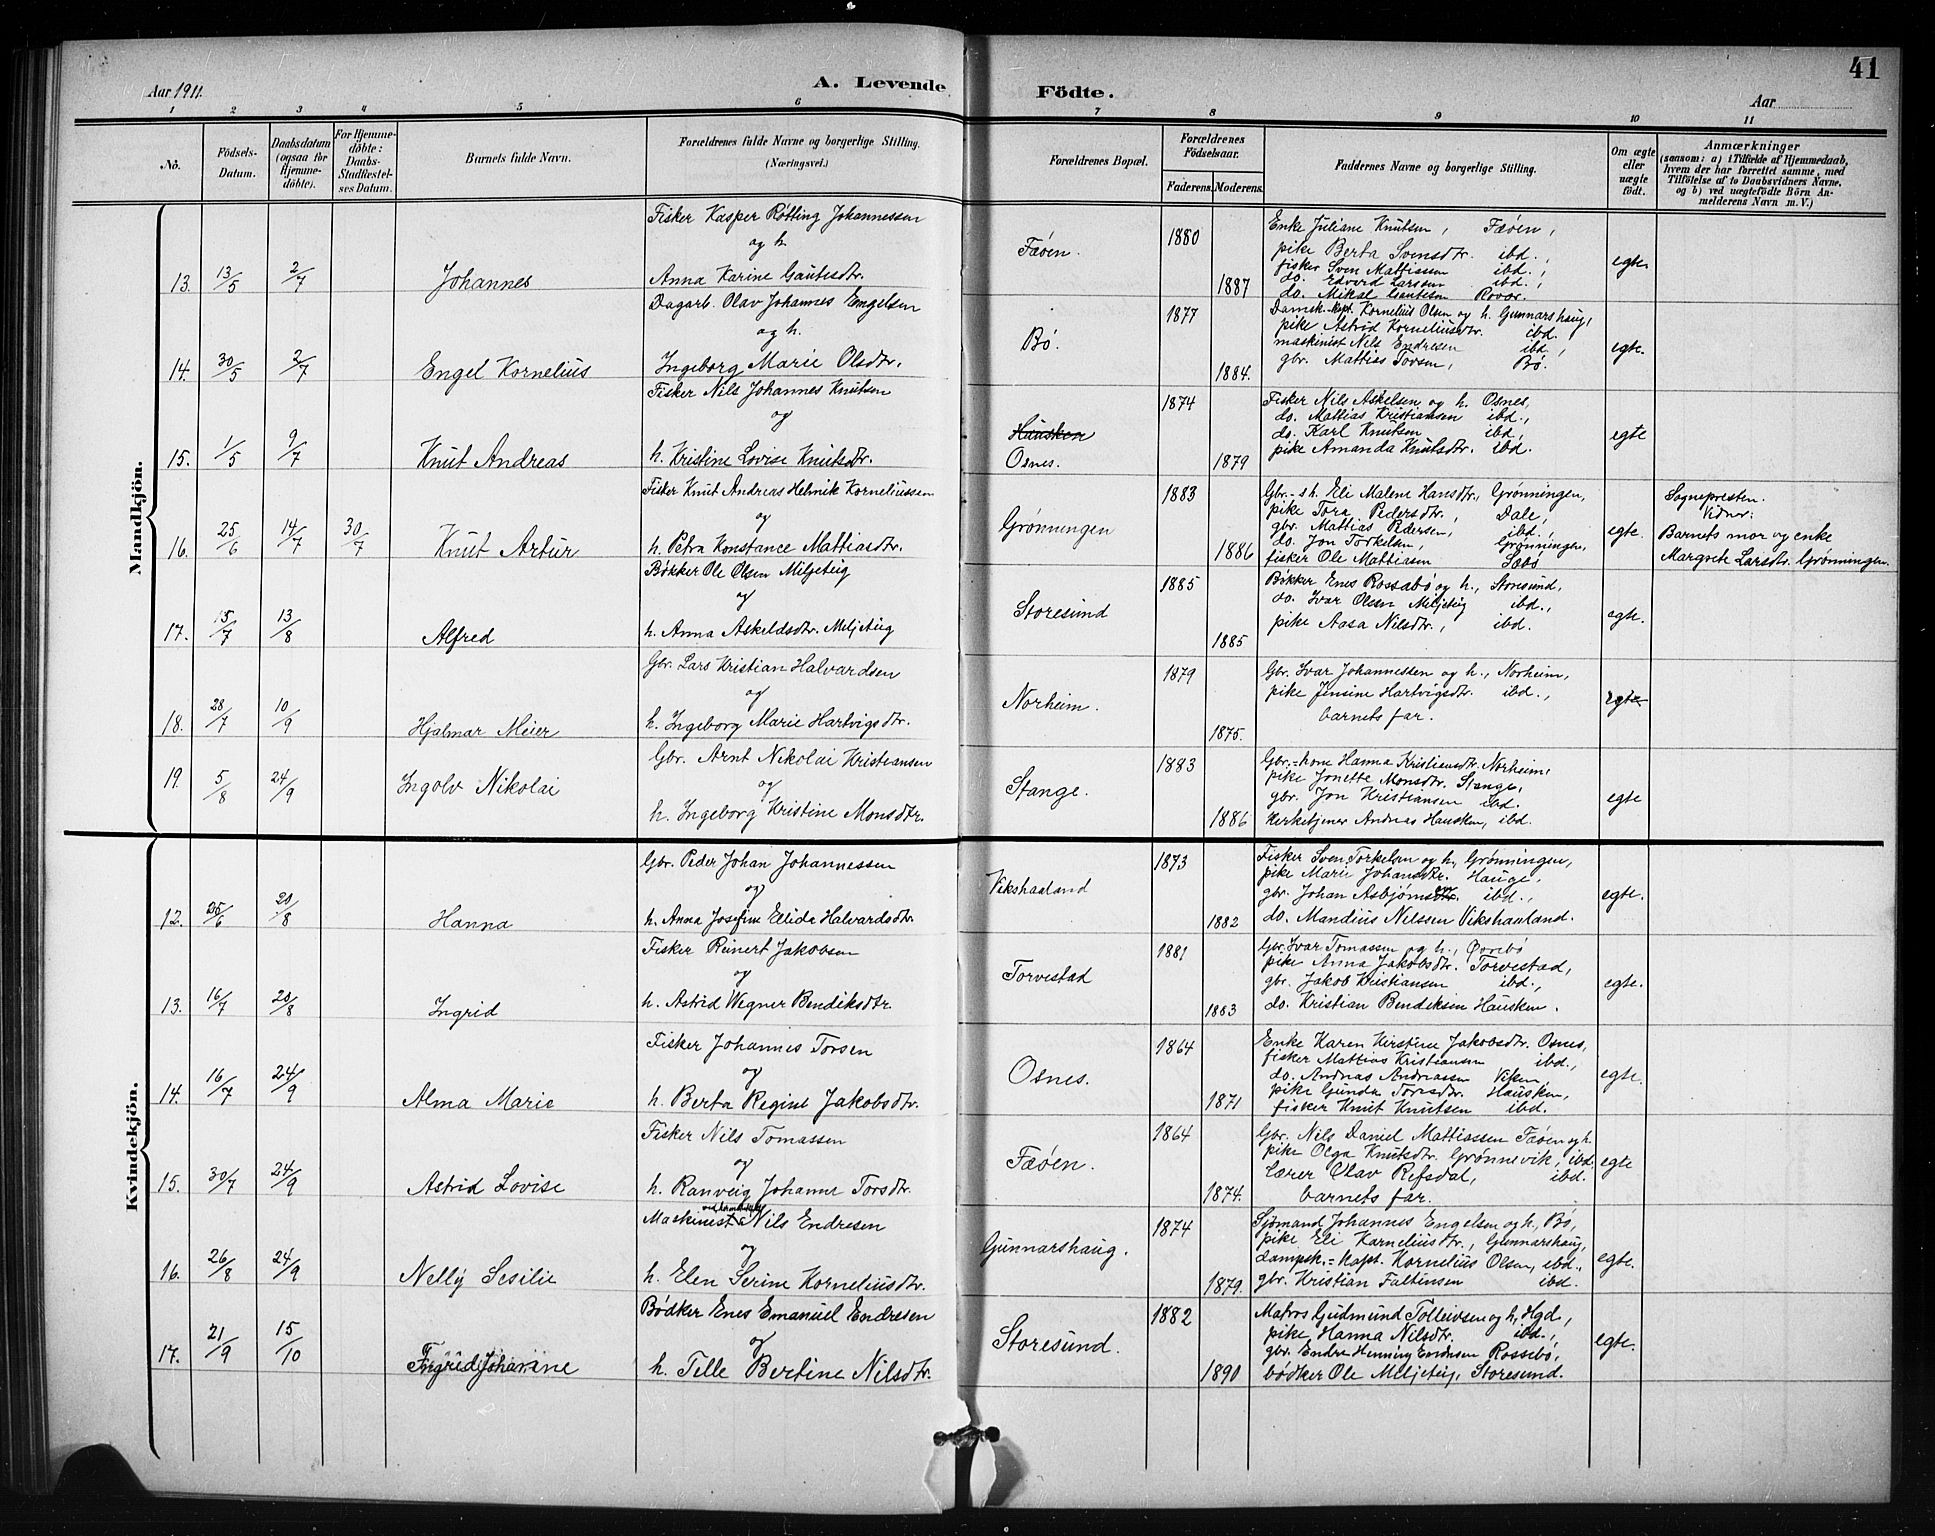 Aar 1911. A. Levende Födte. 41
Aar
1 2 3 4 5 6 7 8 9 10 11
No. Födsels-Datum. Daabsdatum (ogsaa for Hjemme-döbte). For Hjemme-döbte: Daabs-Stadfæstel-ses Datum. Barnets fulde Navn. Forældrenes fulde Navne og borgerlige Stilling. (Næringsvei.) Forældrenes Bopæl. Forældrenes Födselsaar. Faderens. Moderens. Faddernes Navne og borgerlige Stilling. Om ægte eller uægte födt. Anmærkninger (saasom: a) i Tilfælde af Hjemmedaab, hvem der har forrettet samme, med Tilföielse af to Daabsvidners Navne, og b) ved uægtefödte Börn An-melderens Navn m. V.)
Mandkjön.
13. 13/5 2/7 Johannes
Fisker Kasper Røtting Johannessen
og h.
Anna Karine Gautesdtr.
Fæøen. 1880 1887
Enke Juliane Knutsen, Fæøen,
pike Berta Svensdtr. ibd.,
fisker Sven Mattissen ibd.,
do. Edvard Larssen ibd.,
do. Mikal Gautesen Røvær.
egte
14. 30/5 2/7 Engel Kornelius
Dagarb. Olav Johannes Engelsen
og h.
Ingeborg Marie Olsdtr.
Bø. 1877 1884.
Dampsk.-kapt. Kornelius Olsen og h. Gunnarshaug,
pike Astrid Korneliusdtr. ibd.
maskinist Nils Endresen ibd.,
gbr. Mattias Torsen, Bø.
egte.
15. 1/5 9/7 Knut Andreas
Fisker Nils Johannes Knutsen
og
h. Kristine Lovise Knutsdtr.
Hausken
Osnes. 1874 1879
Fisker Nils Askelsen og h. Osnes,
do. Mattias Kristiansen ibd.,
do. Karl Knutsen ibd,
pike Amanda Knutsdtr. ibd.
egte
16. 25/6 14/7 30/7 Knut Artur
Fisker Knut Andreas Helmik Korneliussen
og
h. Petra Konstance Mattiasdtr.
Grønningen 1883 1886
Gbr.-s h. Eli Malene Hansdtr., Grønningen,
pike Tora Pedersdtr., Dale,
gbr. Mattias Pedersen, ibd.,
do. Jon Torkelsen, Grønningen,
fisker Ole Mattiasen
egte.
Sognepresten.
Vidner:
Barnets mor og enke
Margrete Larsdtr. Grønningen.
17. 15/7 13/8 Alfred
Bøkker Ole Olsen Miljeteig
og
h. Anna Askeldsdtr. Miljeteig
Storesund 1885 1885
Bøkker Enes Rossabø og h., Storesund,
do. Ivar Olsen Miljeteig ibd.,
pike Aasa Nilsdtr., ibd.
egte.
18. 28/7 10/9 Hjalmar Meier
Gbr. Lars Kristian Halvardsen
og
h. Ingeborg Marie Hartvigsdtr.
Norheim. 1879 1875.
Gbr. Ivar Johannessen og h., Norheim,
pike Jensine Hartvigsdtr. ibd.,
barnets far.
egte
19. 5/8 24/9 Ingolv Nikolai
Gbr. Arnt Nikolai Kristiansen
og
h. Ingeborg Kristine Monsdtr.
Stange. 1883 1886
Gbr.-kone Hanna Kristiansdtr. Norheim,
pike Jonette Monsdtr. Stange,
gbr. Jon Kristiansen ibd.
Kirketjener Andreas Hausken, ibd.
egte
Kvindekjön.
12. 25/6 20/8 Hanna
Gbr. Peder Johan Johannessen
og
h. Anna Josefine Elida Halvardsdtr.
Vikshaaland 1873 1882
Fisker Sven Torkelsen og h, Grønningen,
pike Marie Johansdtr. Hauge,
gbr. Johan Asbjørnsen. ibd.,
do. Mandius Nilssen Vikshaaland.
egte.
13. 16/7 20/8 Ingrid
Fisker Reinert Jakobsen
og
h. Astrid Wegner Bendiksdtr.
Torvestad 1881 1883
Gbr. Ivar Tomassen og h., Ørebø
pike Anna Jakobsdtr. Torvestad,
gbr. Jakob Kristiansen ibd.,
do. Kristian Bendiksen Hausken.
egte.
14. 16/7 24/9 Alma Marie
Fisker Johannes Torsen
og
h. Berta Regine Jakobsdtr.
Osnes. 1864 1871
Enke Karen Kirstine Jakobsdtr. Osnes,
fisker Mattias Kristiansen ibd.,
do. Andreas Andreassen Viken
pike Gunda Torsdtr. Hausken,
fisker Knut Knutsen ibd.
egte.
15. 30/7 24/9 Astrid Lovise
Fisker Nils Tomassen
og
h. Ranveig Johanne Torsdtr.
Fæøen. 1864 1874.
Gbr. Nils Daniel Mattiassen Fæøen og h.
pike Olga Knutsdtr. Grønnevik, ibd.
Lærer Olav Refsdal, ibd.
barnets far.
egte
16. 26/8 24/9 Nelly Sesilie
Maskinist Nils Endresen
og
h. Elen Serine Korneliusdtr.
Gunnarshaug. 1874 1879.
Sjømand Johannes Engelsen og h, Bø,
pike Eli Korneliusdtr., Gunnarshaug,
dampsk.-kapt. Kornelius Olsen, ibd.,
gbr. Kristian Faltinsen ibd.
egte.
17. 21/9 15/10 Ingrid Johanne
Bødker Enes Emanuel Endresen
og
h. Telle Bertine Nilsdtr.
Storesund. 1882 1890
Matros Gudmund Tolleivsen og h, Hgd,
pike, Hanna Nilsdtr. ibd.,
gbr. Endre Henning Endresen Rossebø,
bødker Ole Miljeteig, Storesund.
egte.